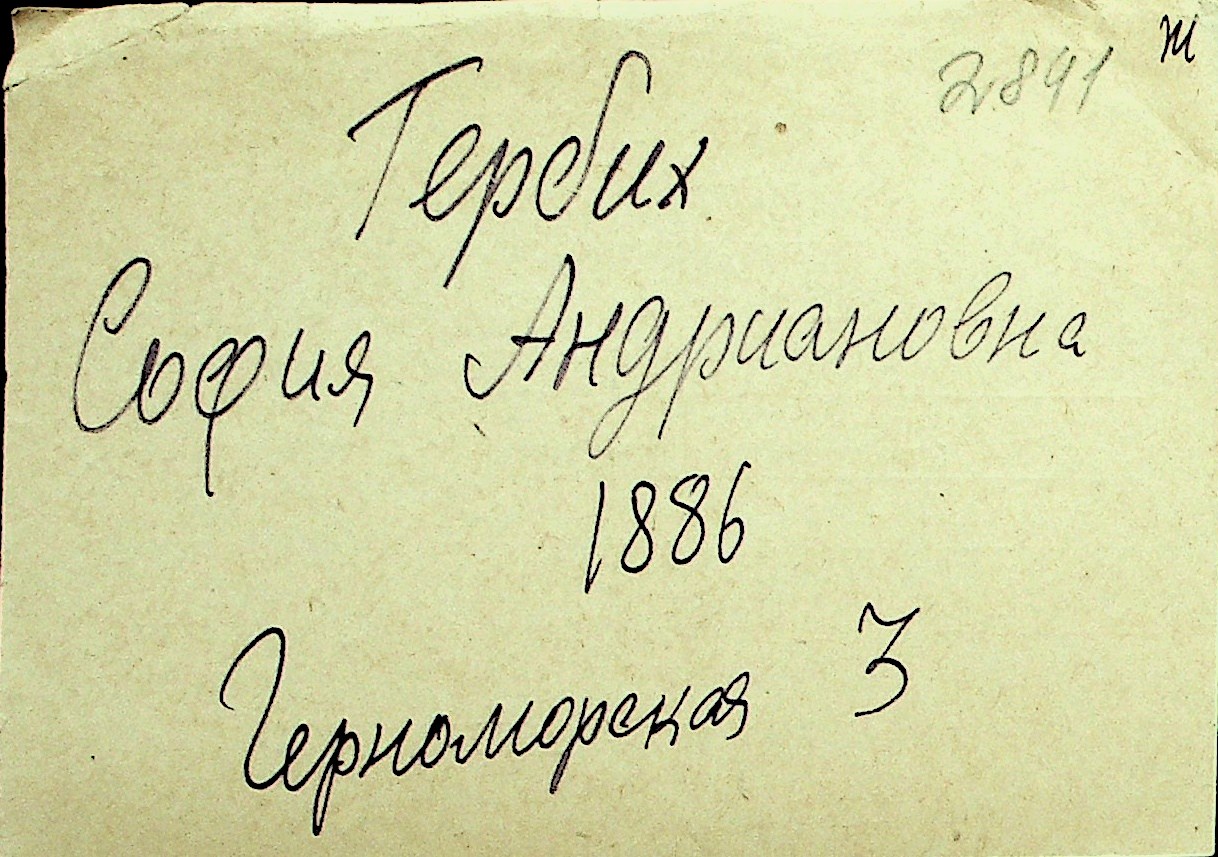 2841 Ж
Гербих
София Андриановна
1886
Черноморская 3